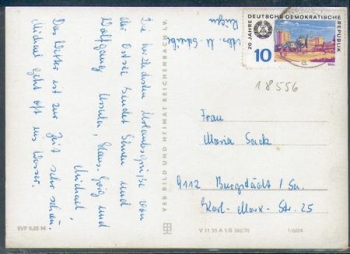 Die herzlichsten Urlaubsgrüße von
der Ostsee sendet Ihnen und
Wolfgang Ursula, Hans-Georg und
Michael!
Das Wetter ist zur Zeit sehr schön.
Michael geht oft ins Wasser.
DEUTSCHE DEMOKRATISCHE
REPUBLIK
20 JAHRE DDR
10
18556
Frau
Maria Sack
9112 Burgstädt / Sa.
Karl-Marx-Str. 25
VEB BILD UND HEIMAT REICHENBACH